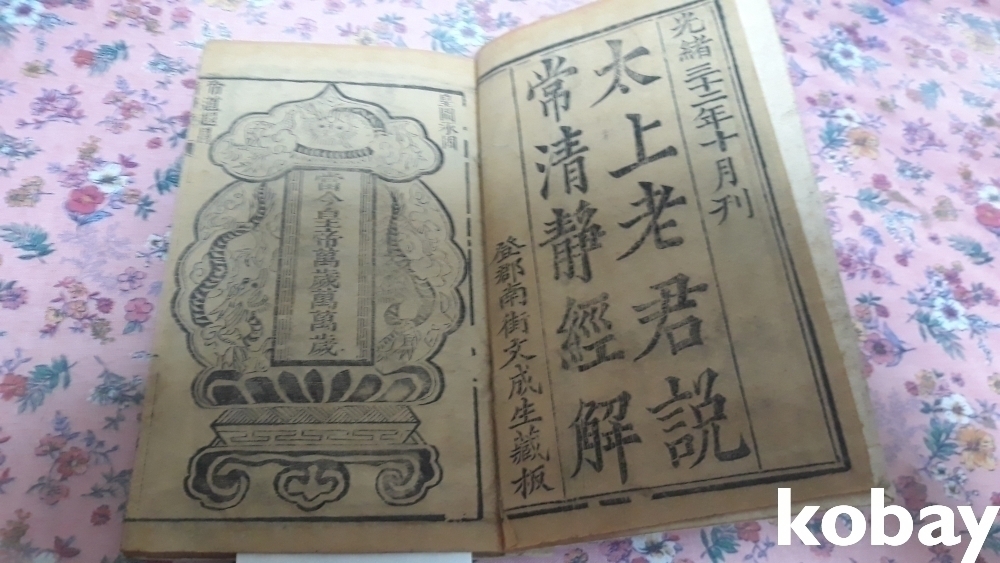 光緒三十二年十月刊
太上老君説
常清靜經解
登郡南街文成生藏板
皇圖永固
當今皇帝萬歲萬萬歲
帝道遐昌
kobay